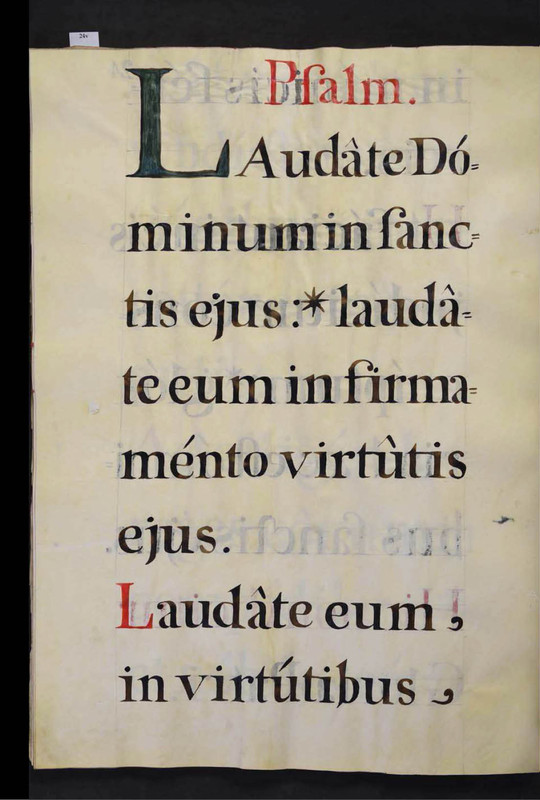 28v
Pſalm.
LAudâte Dó=
minum in ſanc=
tis ejus :* laudâ=
te eum in firma=
ménto virtûtis
ejus.
Laudâte eum ,
in virtútibus ,